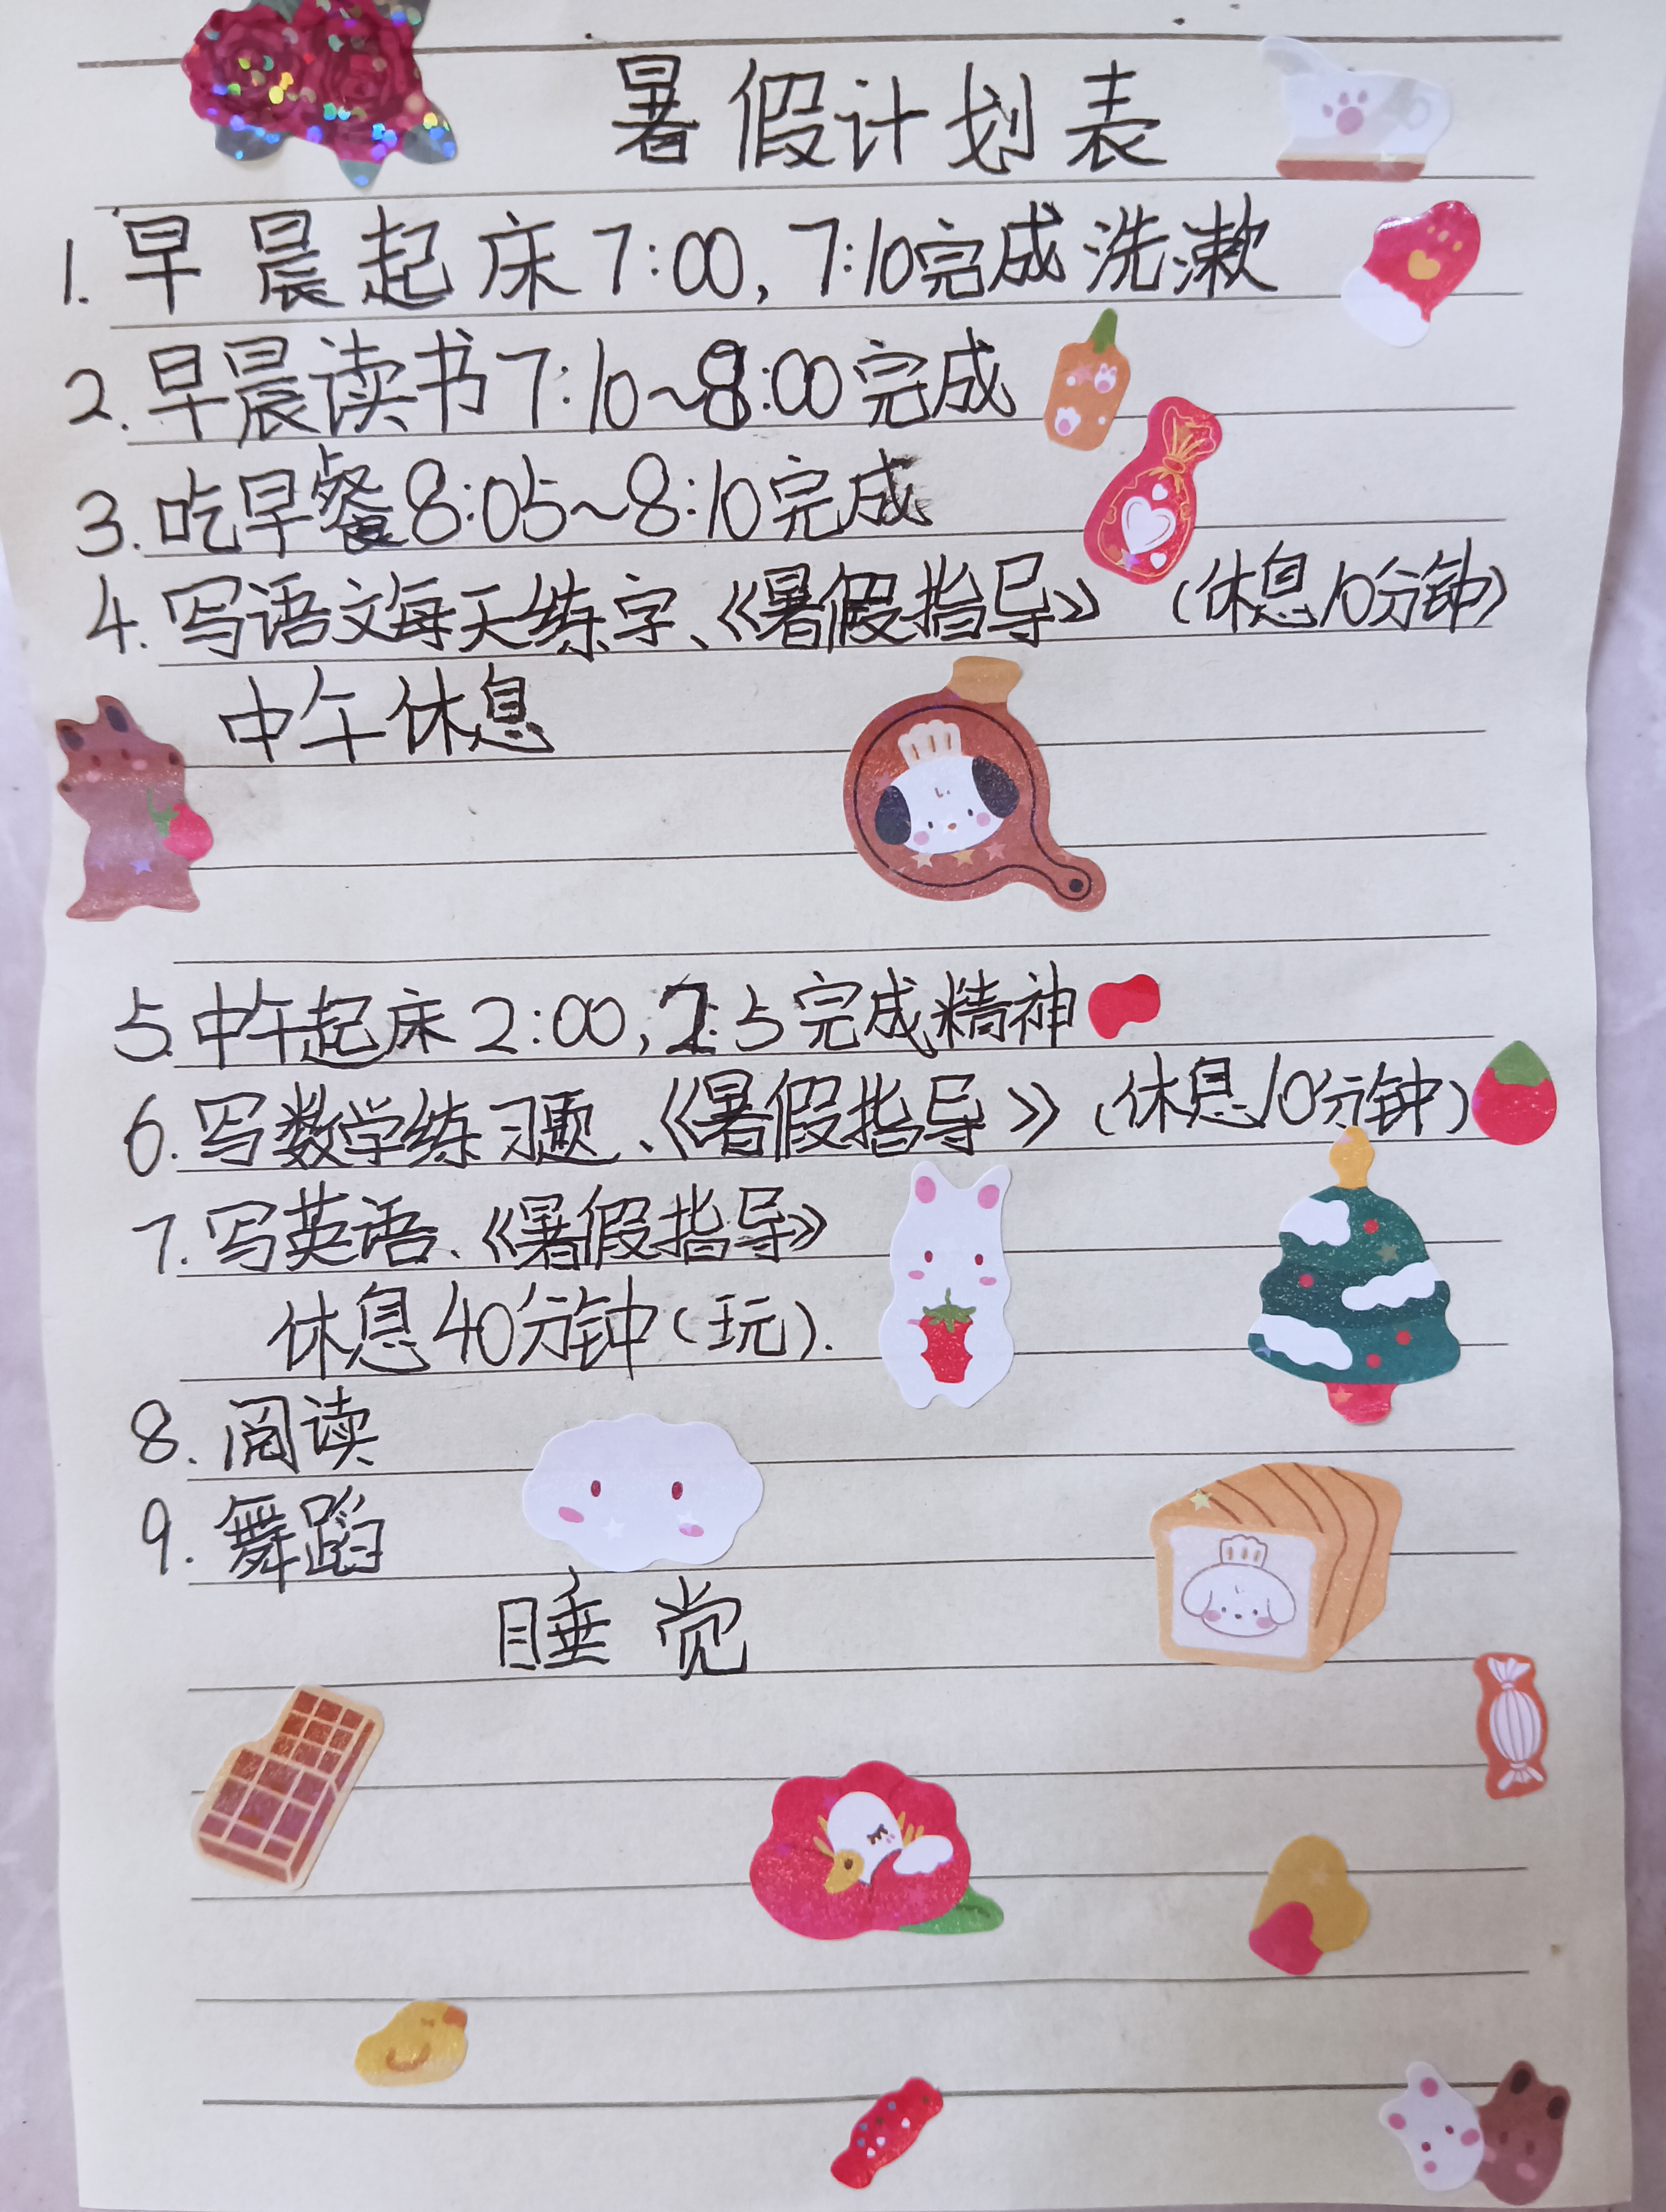 暑假计划表
1. 早晨起床7:00,7:10完成洗漱
2. 早晨读书7:10~8:00完成
3. 吃早餐8:05~8:10完成
4. 写语文每天练字、《暑假指导》 (休息10分钟)
中午休息
5. 中午起床2:00,2:5完成精神
6. 写数学练习题、《暑假指导》(休息10分钟)
7. 写英语、《暑假指导》
休息40分钟(玩).
8. 阅读
9. 舞蹈
睡觉